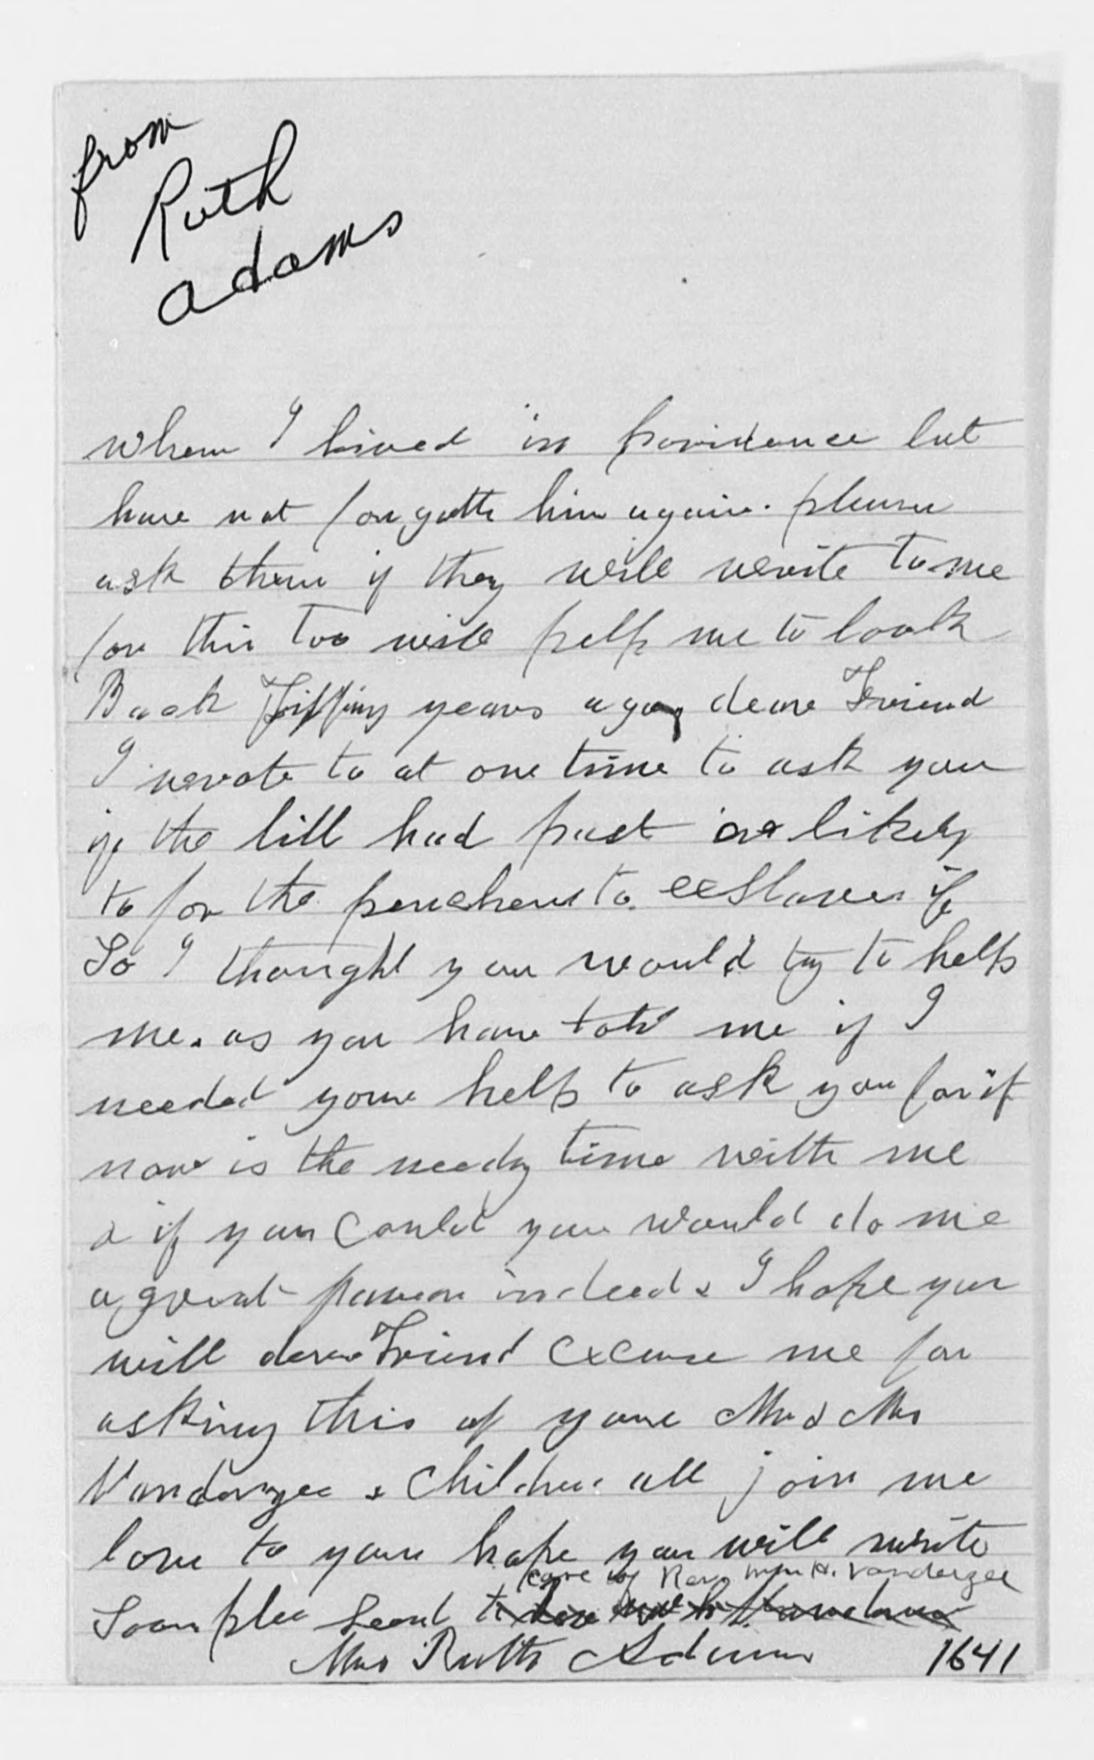 from
Ruth
adams
when I lived in providence but
have not forgotte him again. please
ask them if they will write to me
for this too will help me to look
Back Fiffiny years ago, deare Friend
I wrote to at one time to ask you
if the bill had past or likely
to for the to exSlaves if
So I thought you would try to help
me. as you have told me if I
needed your help to ask you for it
now is the needy time with me
& if you Could you would do me
a great favor indeed & I hope you
will deare Friend Excuse me for
asking this of youre Mr & Mrs
Vanderzee & Children all join me
love to youre hope you will write
care of Rev Wm H. Vanderzee
Soon plea Send to
Mrs Ruth Adams 1641